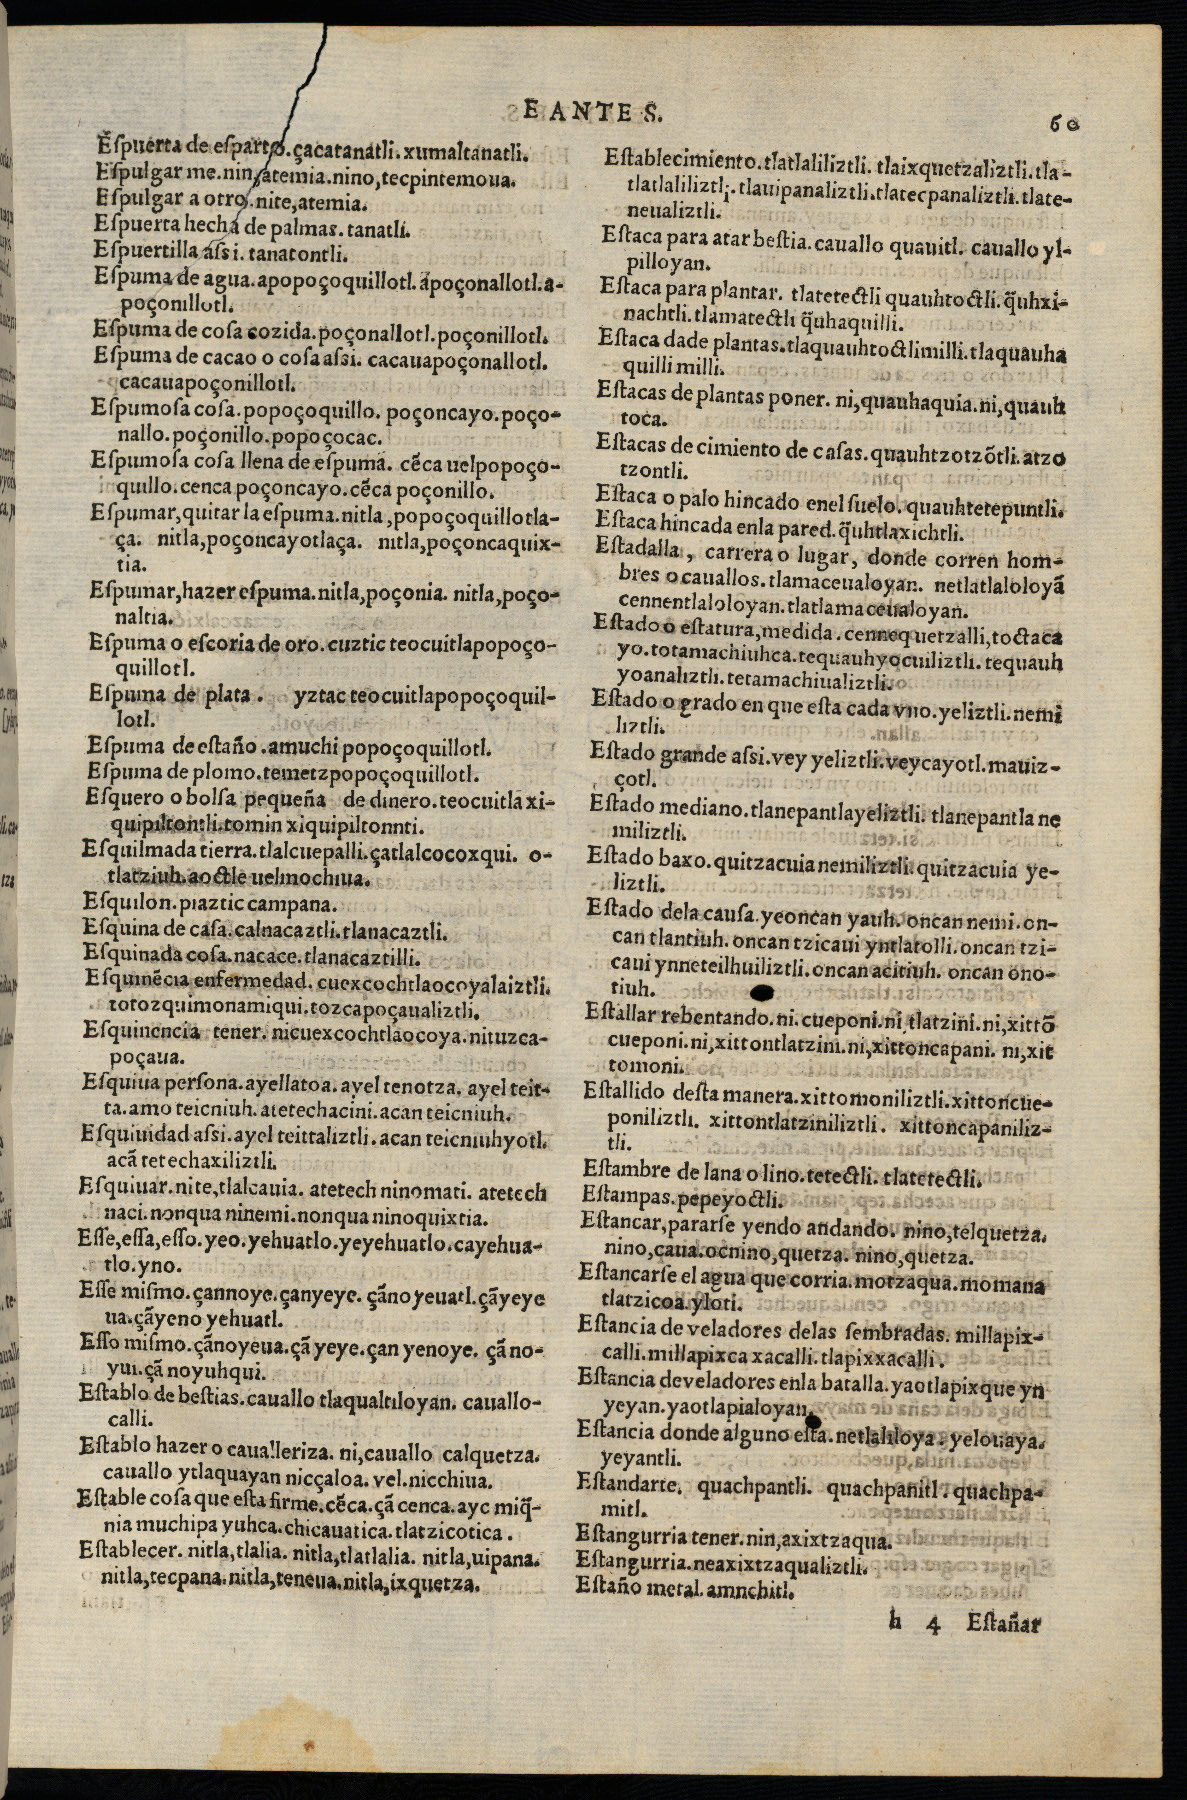 E ANTE S.
60
Eſpuerta de eſparto. çacatanatli. xumaltanatli.
Eſpulgar me. nin, atemia. nino, tecpintemoua.
Eſpulgar a otro. nite, atemia.
Eſpuerta hecha de palmas. tanatli.
Eſpuertilla aſsi. tanatontli.
Eſpuma de agua. apopoçoquillotl. apoçonallotl. a-
poçonillotl.
Eſpuma de coſa cozida. poçonallotl. poçonillotl.
Eſpuma de cacao o coſa aſsi. cacauapoçonallotl.
cacauapoçonillotl.
Eſpumoſa coſa. popoçoquillo. poçoncayo. poço-
nallo. poçonillo. popoçocac.
Eſpumoſa coſa llena de eſpuma. cẽca uelpopoço-
quillo. cenca poçoncayo. cẽca poçonillo.
Eſpumar, quitar la eſpuma. nitla, popoçoquillotla-
ça. nitla, poçoncayotlaça. nitla, poçoncaquix-
tia.
Eſpumar, hazer eſpuma. nitla, poçonia. nitla, poço-
naltia.
Eſpuma o eſcoria de oro. cuztic teocuitlapopoço-
quillotl.
Eſpuma de plata. yztac teocuitlapopoçoquil-
lotl.
Eſpuma de eſtaño. amuchi popoçoquillotl.
Eſpuma de plomo. temetzpopoçoquillotl.
Eſquero o bolſa pequeña de dinero. teocuitla xi-
quipiltontli. tomin xiquipiltonnti.
Eſquilmada tierra. tlalcuepalli. çatlalcocoxqui. o-
tlatziuh. aoctle uelmochiua.
Eſquilon. piaztic campana.
Eſquina de caſa. calnacaztli. tlanacaztli.
Eſquinada coſa. nacace. tlanacaztilli.
Eſquinẽcia enfermedad. cuexcochtlaocoyalaiztli.
totozquimonamiqui. tozcapoçaualiztli.
Eſquinencia tener. nicuexcochtlaocoya. nituzca-
poçaua.
Eſquiua perſona. ayellatoa. ayel tenotza. ayel teit-
ta. amo teicniuh. atetechacini. acan teicniuh.
Eſquiuidad aſsi. ayel teittaliztli. acan teicniuhyotl.
acã tetechaxiliztli.
Eſquiuar. nite, tlalcauia. atetech ninomati. atetech
naci. nonqua ninemi. nonqua ninoquixtia.
Eſſe, eſſa, eſſo. yeo. yehuatlo. yeyehuatlo. cayehua-
tlo. yno.
Eſſe miſmo. çannoye. çanyeye. çãno yeuatl. çãyeye
ua. çãyeno yehuatl.
Eſſo miſmo. çãnoyeua. çã yeye. çan yenoye. çã no-
yui. çã noyuhqui.
Eſtablo de beſtias. cauallo tlaqualtiloyan. cauallo-
calli.
Eſtablo hazer o caualleriza. ni, cauallo calquetza.
cauallo ytlaquayan nicçaloa. vel. nicchiua.
Eſtable coſa que eſta firme. cẽca. çã cenca. ayc miq̃-
nia muchipa yuhca. chicauatica. tlatzicotica.
Eſtablecer. nitla, tlalia. nitla, tlatlalia. nitla, uipana.
nitla, tecpana. nitla, teneua. nitla, ixquetza.
Eſtablecimiento. tlatlaliliztli. tlaixquetzaliztli. tla-
tlatlaliliztli. tlauipanaliztli. tlatecpanaliztli. tlate-
neualiztli.
Eſtaca para atar beſtia. cauallo quauitl. cauallo yl-
pilloyan.
Eſtaca para plantar. tlatetectli quauhtoctli. q̃uhxi-
nachtli. tlamatectli q̃uhaquilli.
Eſtaca dade plantas. tlaquauhtoctlimilli. tlaquauha
quilli milli.
Eſtacas de plantas poner. ni, quauhaquia. ni, quauh
toca.
Eſtacas de cimiento de caſas. quauhtzotzõtli. atzo
tzontli.
Eſtaca o palo hincado enel ſuelo. quauhtetepuntli.
Eſtaca hincada enla pared. q̃uhtlaxichtli.
Eſtadalla, carrera o lugar, donde corren hom-
bres o cauallos. tlamaceualoyan. netlatlaloloyã
cennentlaloloyan. tlatlamaceualoyan.
Eſtado o eſtatura, medida. cennequetzalli, toctaca
yo. totamachiuhca. tequauhyocuiliztli. tequauh
yoanaliztli. tetamachiualiztli.
Eſtado o grado en que eſta cada vno. yeliztli. nemi
liztli.
Eſtado grande aſsi. vey yeliztli. veycayotl. mauiz-
çotl.
Eſtado mediano. tlanepantlayeliztli. tlanepantla ne
miliztli.
Eſtado baxo. quitzacuia nemiliztli. quitzacuia ye-
liztli.
Eſtado dela cauſa. yeoncan yauh. oncan nemi. on-
can tlantiuh. oncan tzicaui yntlatolli. oncan tzi-
caui ynneteilhuiliztli. oncan acitiuh. oncan ono-
tiuh.
Eſtallar rebentando. ni, cueponi. ni, tlatzini. ni, xittõ
cueponi. ni, xittontlatzini. ni, xittoncapani. ni, xit
tomoni.
Eſtallido deſta manera. xittomoniliztli. xittoncue-
poniliztli. xittontlatziniliztli. xittoncapaniliz-
tli.
Eſtambre de lana o lino. tetectli. tlatetectli.
Eſtampas. pepeyoctli.
Eſtancar, pararſe yendo andando. nino, telquetza.
nino, caua. ocnino, quetza. nino, quetza.
Eſtancarſe el agua que corria. motzaqua. momana
tlatzicoa. yloti.
Eſtancia de veladores delas ſembradas. millapix-
calli. millapixca xacalli. tlapixxacalli.
Eſtancia develadores enla batalla. yaotlapixque yn
yeyan. yaotlapialoyan.
Eſtancia donde alguno eſta. netlaliloya. yelouaya.
yeyantli.
Eſtandarte. quachpantli. quachpanitl. quachpa-
mitl.
Eſtangurria tener. nin, axixtzaqua.
Eſtangurria. neaxixtzaqualiztli.
Eſtaño metal. amnchitl.
h 4 Eſtañar